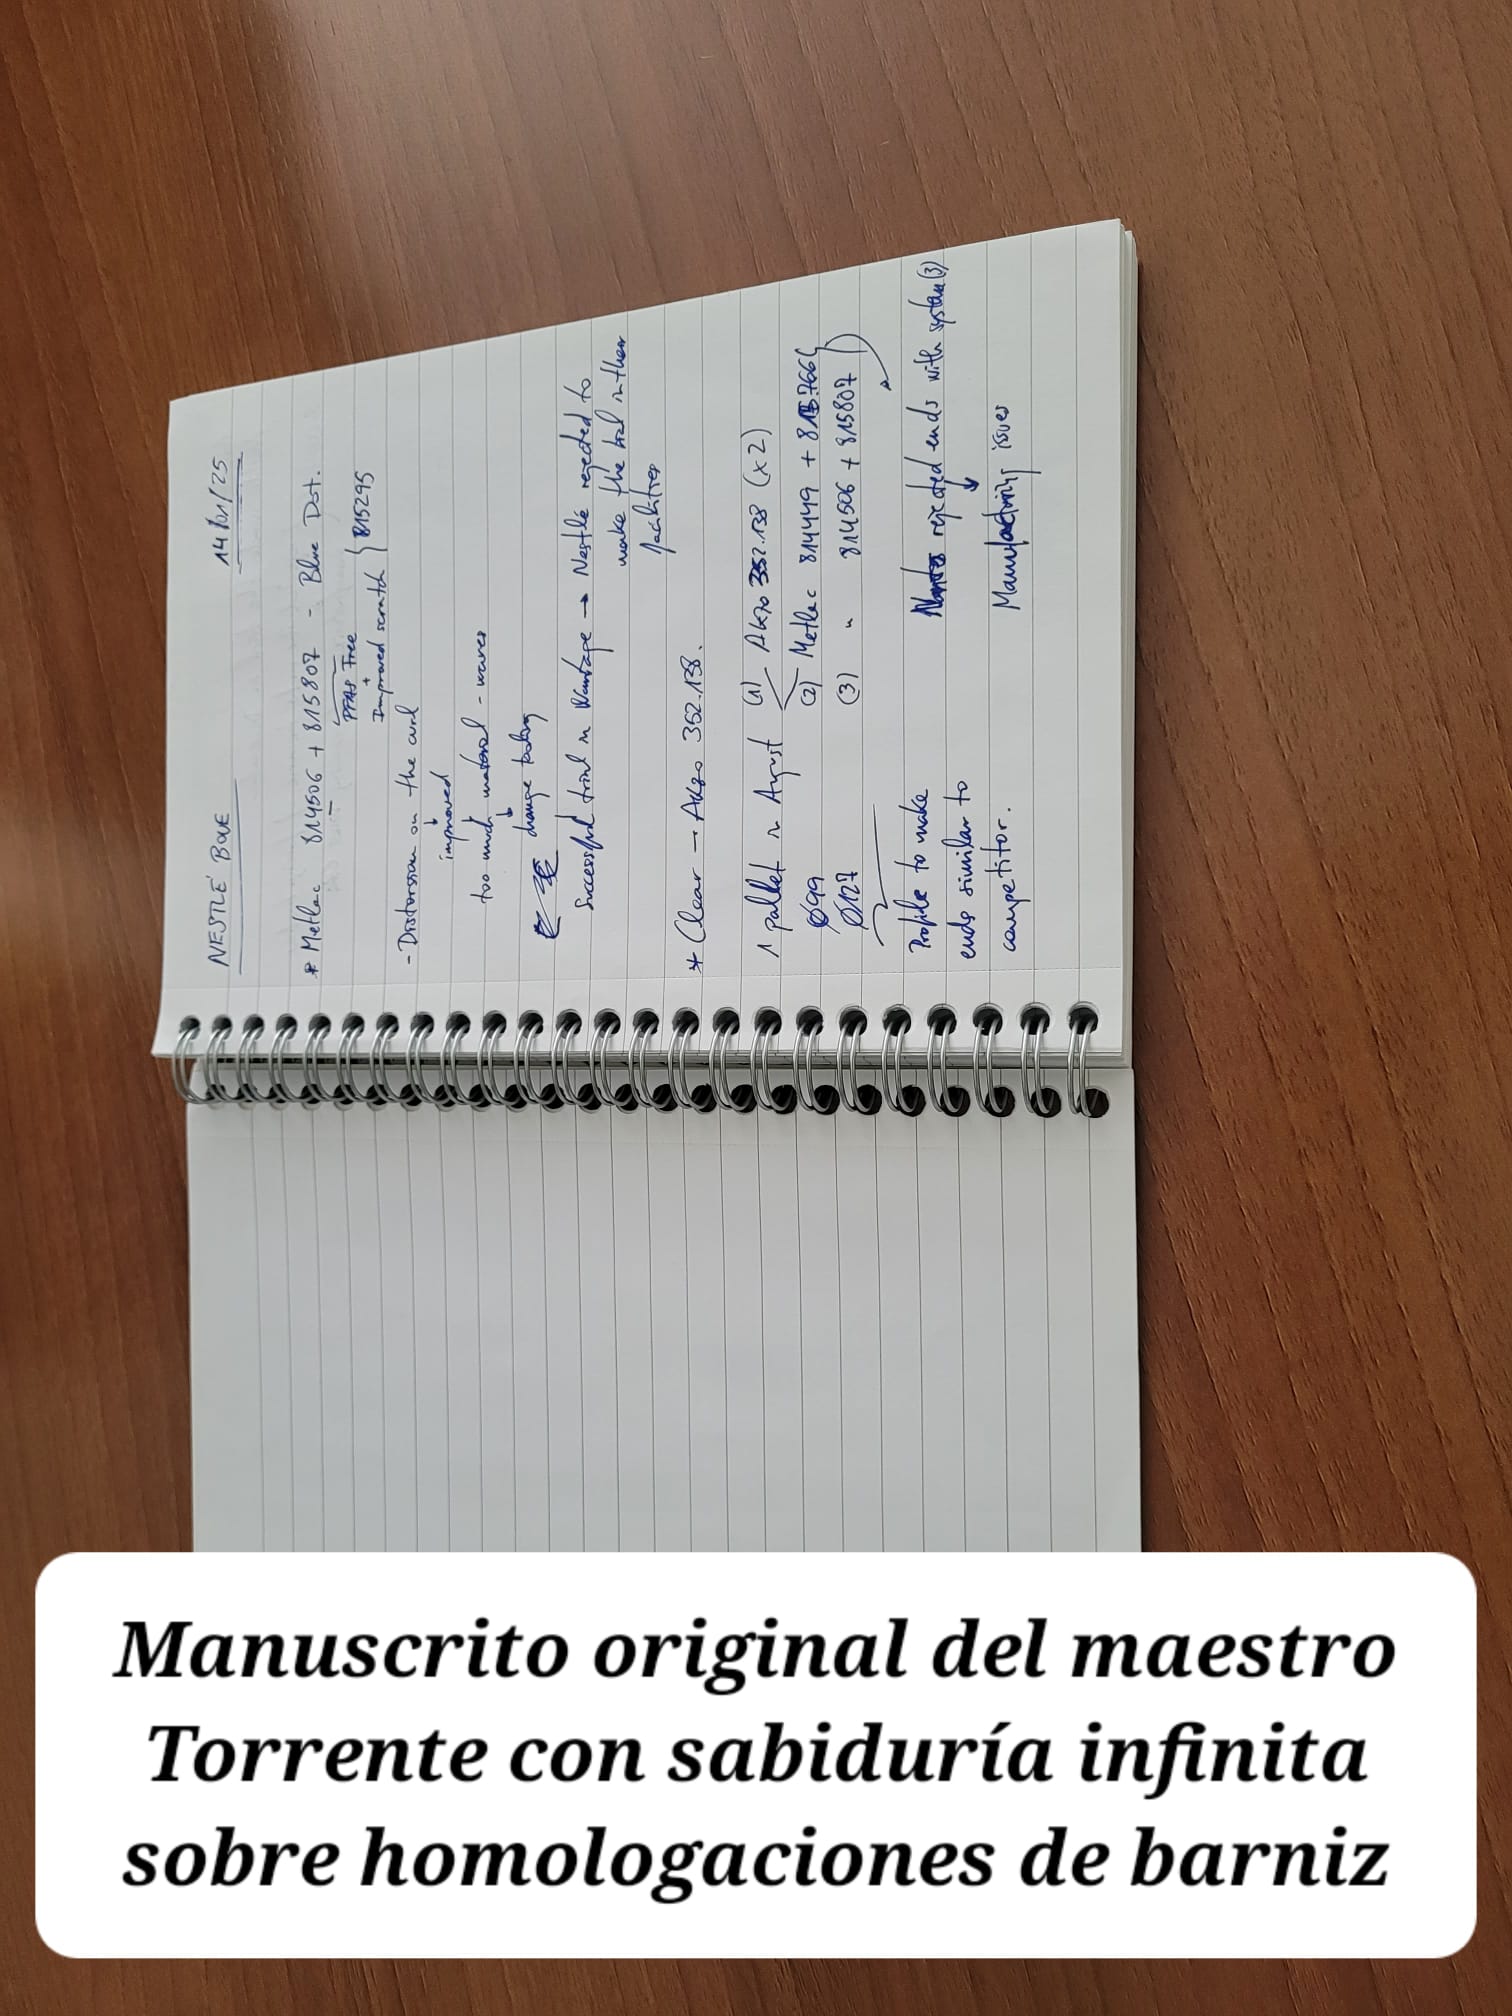 NESTLÉ BOUE 14/01/25
* Metlac 814506 + 815807 - Blue Dot.
PFAS Free
+
Improved scratch } 815295
- Distorsion on the curl
↓
improved
too much material - waves
↓
change tooling
Successful trial in Wantage → Nestle rejected to
make the trial in their
facilities
* Clear → Akzo 352.138.
1 pallet in August (1) Akzo 352.138 (x2)
Ø99 (2) Metlac 814449 + 815.766
Ø127 (3) " 814506 + 815807
Profile to make
ends similar to
competitor.
rejected ends with system (3)
↓
Manufacturing issues
Manuscrito original del maestro
Torrente con sabiduría infinita
sobre homologaciones de barniz